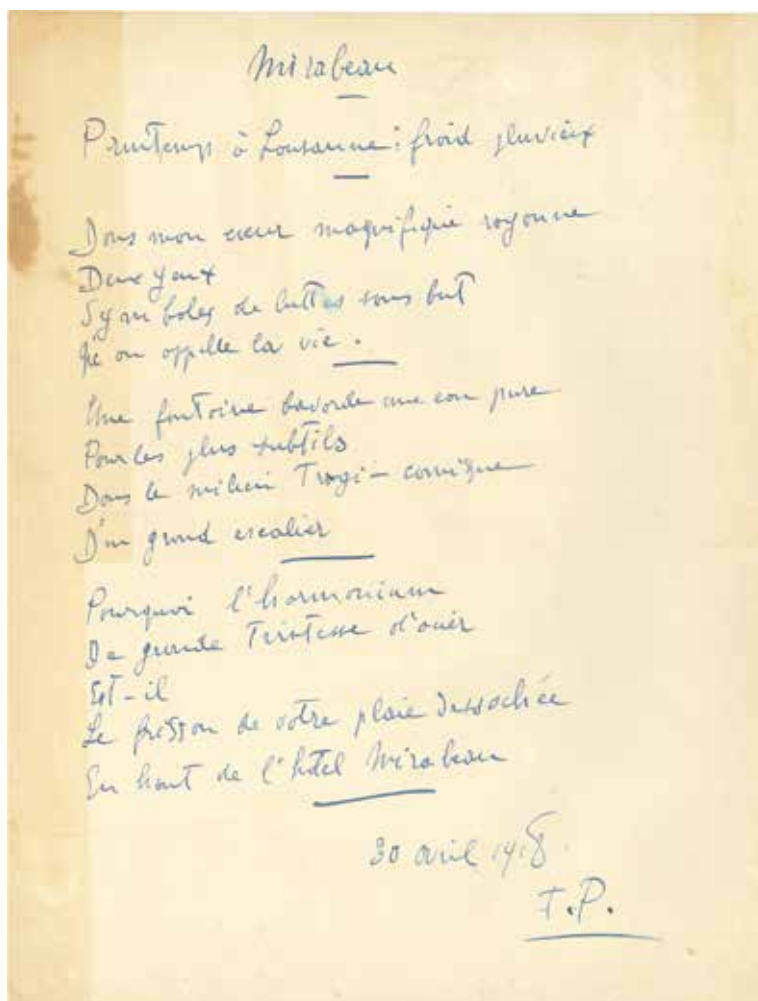 Mirabeau
Printemps à Lausanne : froid pluvieux
Dans mon cœur magnifique rayonne
Deux yeux
Symboles de luttes sans but
Qu'on appelle la vie.
Une fontaine bavarde une eau pure
Pour les plus subtils
Dans le milieu Tragi-comique
D'un grand escalier
Pourquoi l'harmonium
De grande Tristesse d'acier
Est-il
Le frisson de votre plaie dessechée
En haut de l'hotel Mirabeau
30 avril 1918.
F.P.